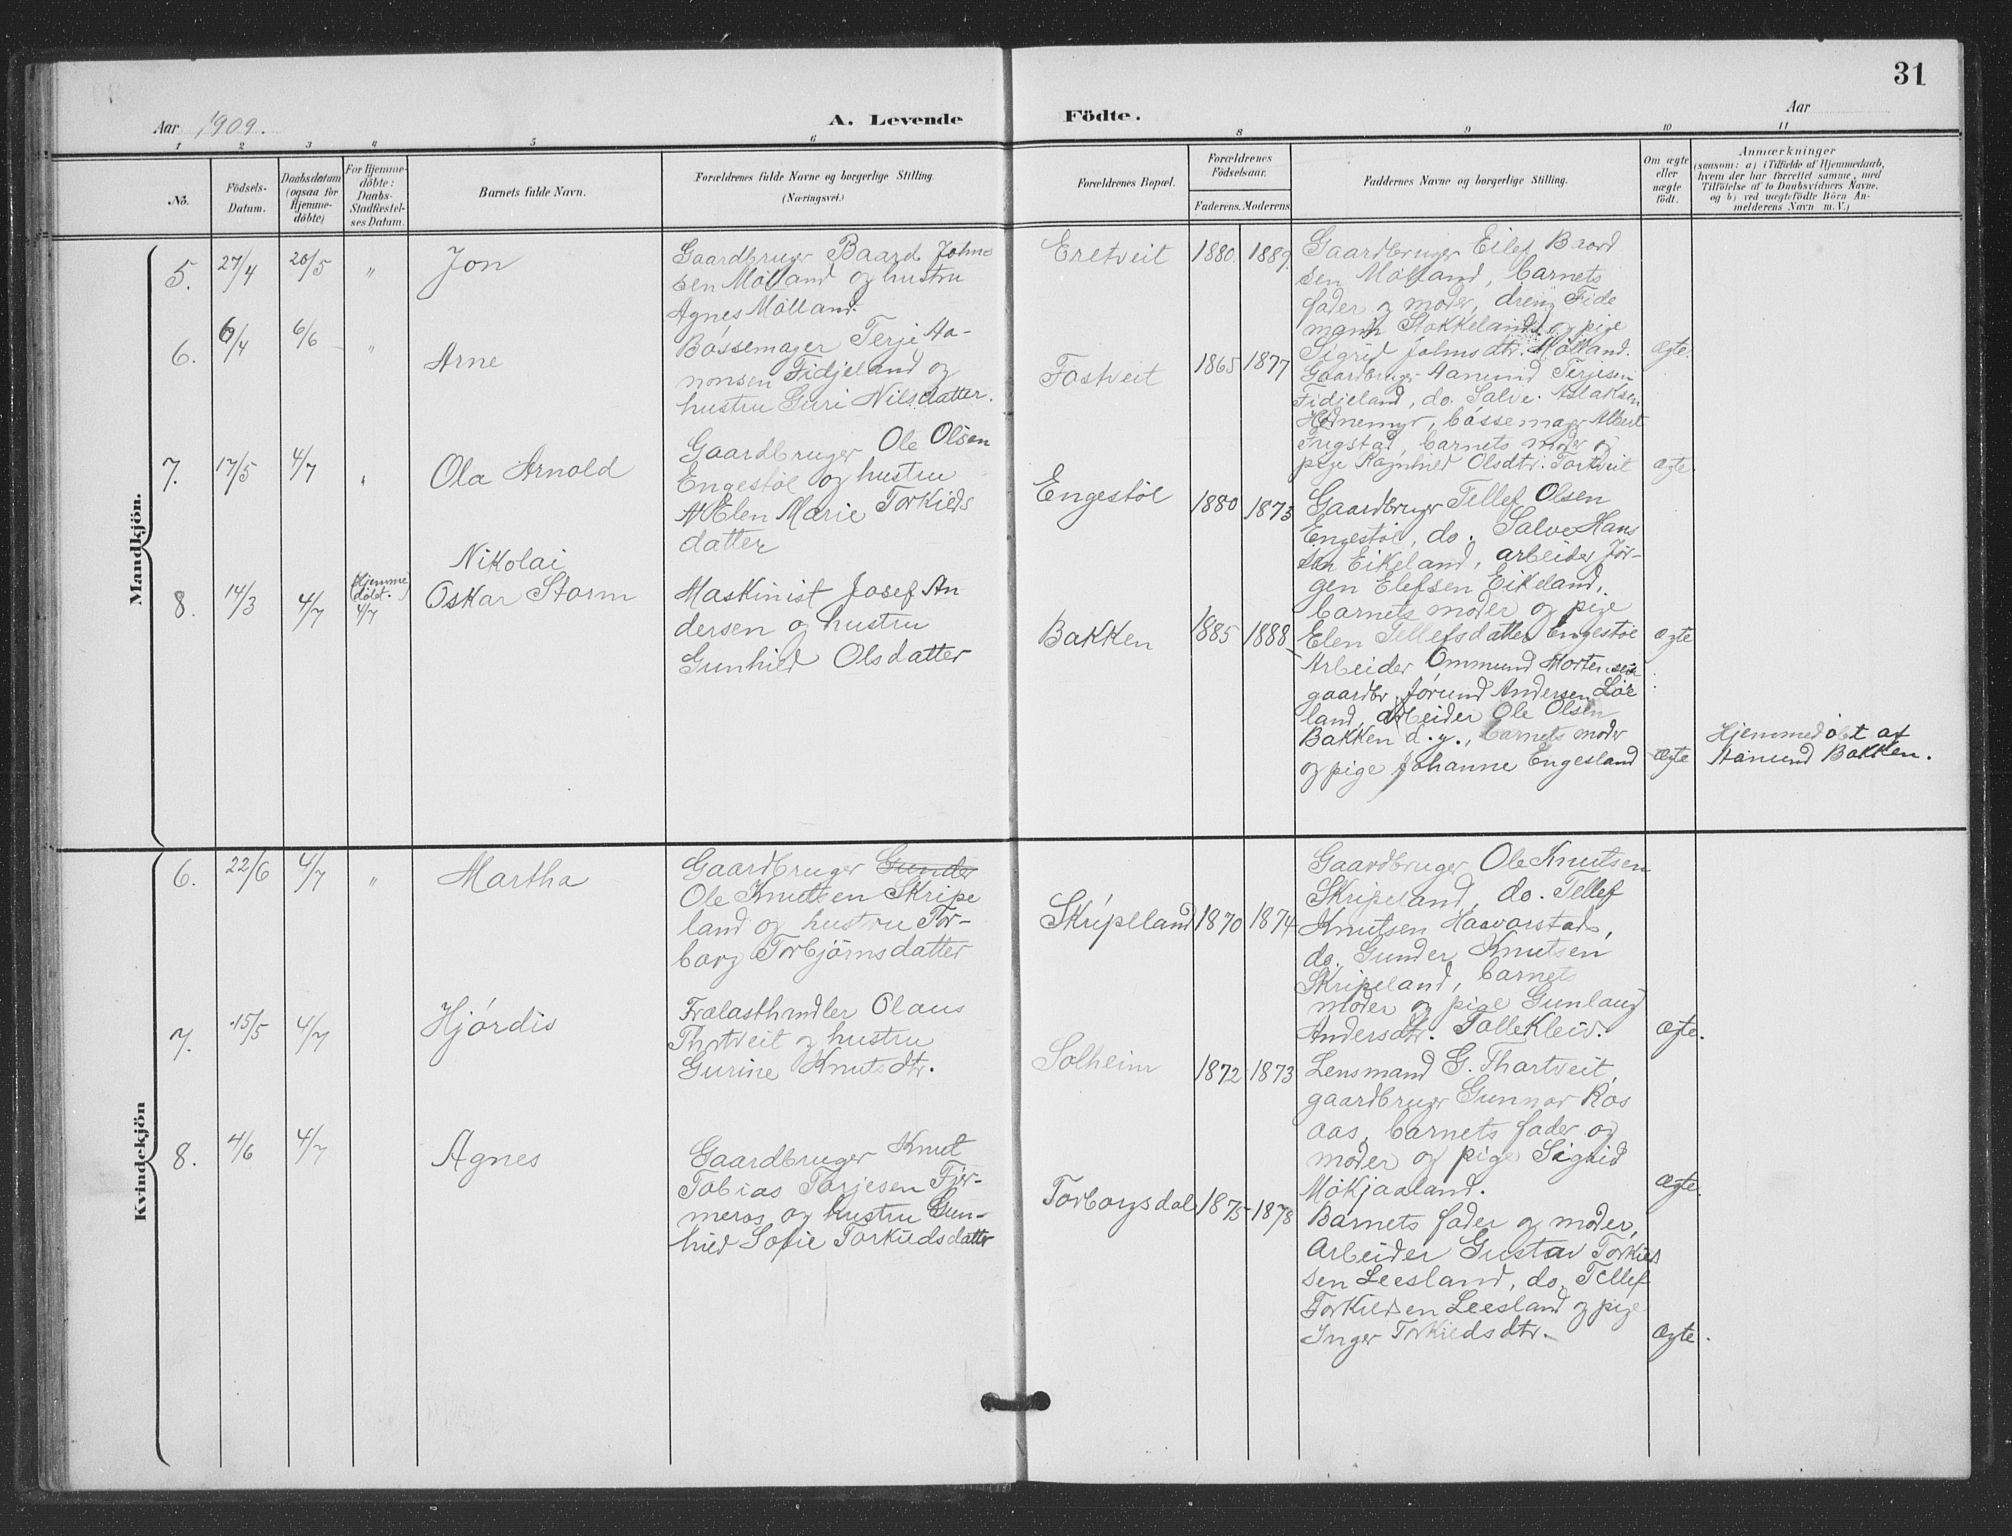 31
Aar 1909.
A. Levende Födte.
Aar
1 2 3 4 5 6 8 9 10 11
No.
Födsels-
Datum.
Daabsdatum
(ogsaa for
Hjemme-
döbte)
For Hjemme-
döbte:
Daabs-
Stadfæstel-
ses Datum.
Barnets fulde Navn.
Forældrenes fulde Navne og borgerlige Stilling.
(Næringsvei.)
Forældrenes Bopæl.
Forældrenes
Födselsaar.
Faderens. Moderens.
Faddernes Navne og borgerlige Stilling.
Om ægte
eller
uægte
födt.
Anmærkninger
(saasom: a) i Tilfælde af Hjemmedaab,
hvem der har forrettet samme, med
Tilföielse af to Daabsvidners Navne,
og b) ved uægtefödte Börn An-
melderens Navn m. V.)
Mandkjön.
5. 27/4 20/5 "
Jon
Gaardbruger Baard Johns
sen Mölland og hustru
Agnes Mölland.
Eretveit 1880. 1889.
Gaardbruger Eilef Baard
sen Mölland, barnets
fader og moder, dreng Fide
mann Stokkeland og pige
Sigrid Johnsdtr. Mölland.
ægte.
6. 6/4 6/6 "
Arne
Bössemager Terje Aa-
nonsen Fidjeland og
hustru Guri Nilsdatter.
Fostveit 1865 1877
Gaardbruger Aanund Terjesen
Fidjeland, do. Salve Aslaksen
Hödnemyr, bössemager Albert
Frigstad, barnets moder og
pige Ragnhild Olsdtr. Tortveit
ægte.
7. 17/5 4/7 "
Ola Arnold
Gaardbruger Ole Olsen
Engestöl og hustru
Elen Marie Torkilds
datter
Engestöl 1880 1873
Gaardbruger Tellef Olsen
Engestöl, do. Salve Hans
sen Eikeland, arbeider Jör-
gen Elefsen Eikeland,
barnets moder og pige
Elen Tellefsdatter Engestöl
ægte
8. 14/3 4/7 (Hjemme
döbt.)
4/7
Nikolai
Oskar Storm
Maskinist Josef An
dersen og hustru
Gunhild Olsdatter
Bakken 1885 1888
Arbeider Ommund Mortensen
gaardbr. Jörund Andersen Löe
land, arbeider Ole Olsen
Bakken d.y., barnets moder
og pige Johanne Engesland
ægte
Hjemmedöbt af
Aanund Bakken.
Kvindekjön
6. 22/6 4/7 "
Martha
Gaardbruger Gunder
Ole Knutsen Skripe
land og hustru Tor-
borg Torbjörnsdatter
Skripeland 1870 1874
Gaardbruger Ole Knutsen
Skripeland, do. Tellef
Knutsen Haavorstad,
do. Gunder Knutsen
Skripeland, barnets
moder og pige Gunlaug
Andersdtr. Tallekleiv.
ægte.
7. 15/5 4/7
Hjördis
Trælasthndler Olaus
Thortveit og hustru
Gurine Knutsdtr.
Solheim 1872 1873
Lensmand G. Thortveit,
gaardbruger Gunnar Ros
aas, barnets fader og
moder og pige Sigrid
Mökjaaland.
ægte.
8. 4/6 4/7
Agnes
Gaardbruger Knut
Tobias Tarjesen Fjer-
meros og hustru Gun-
hild Sofie Torkildsdatter
Torborgsdal 1875 1878
Barnets fader og moder,
Arbeider Gustav Torkilds
sen Leesland, do. Tellef
Torkildsen Leesland og pige
Inger Torkildsdtr.
ægte.